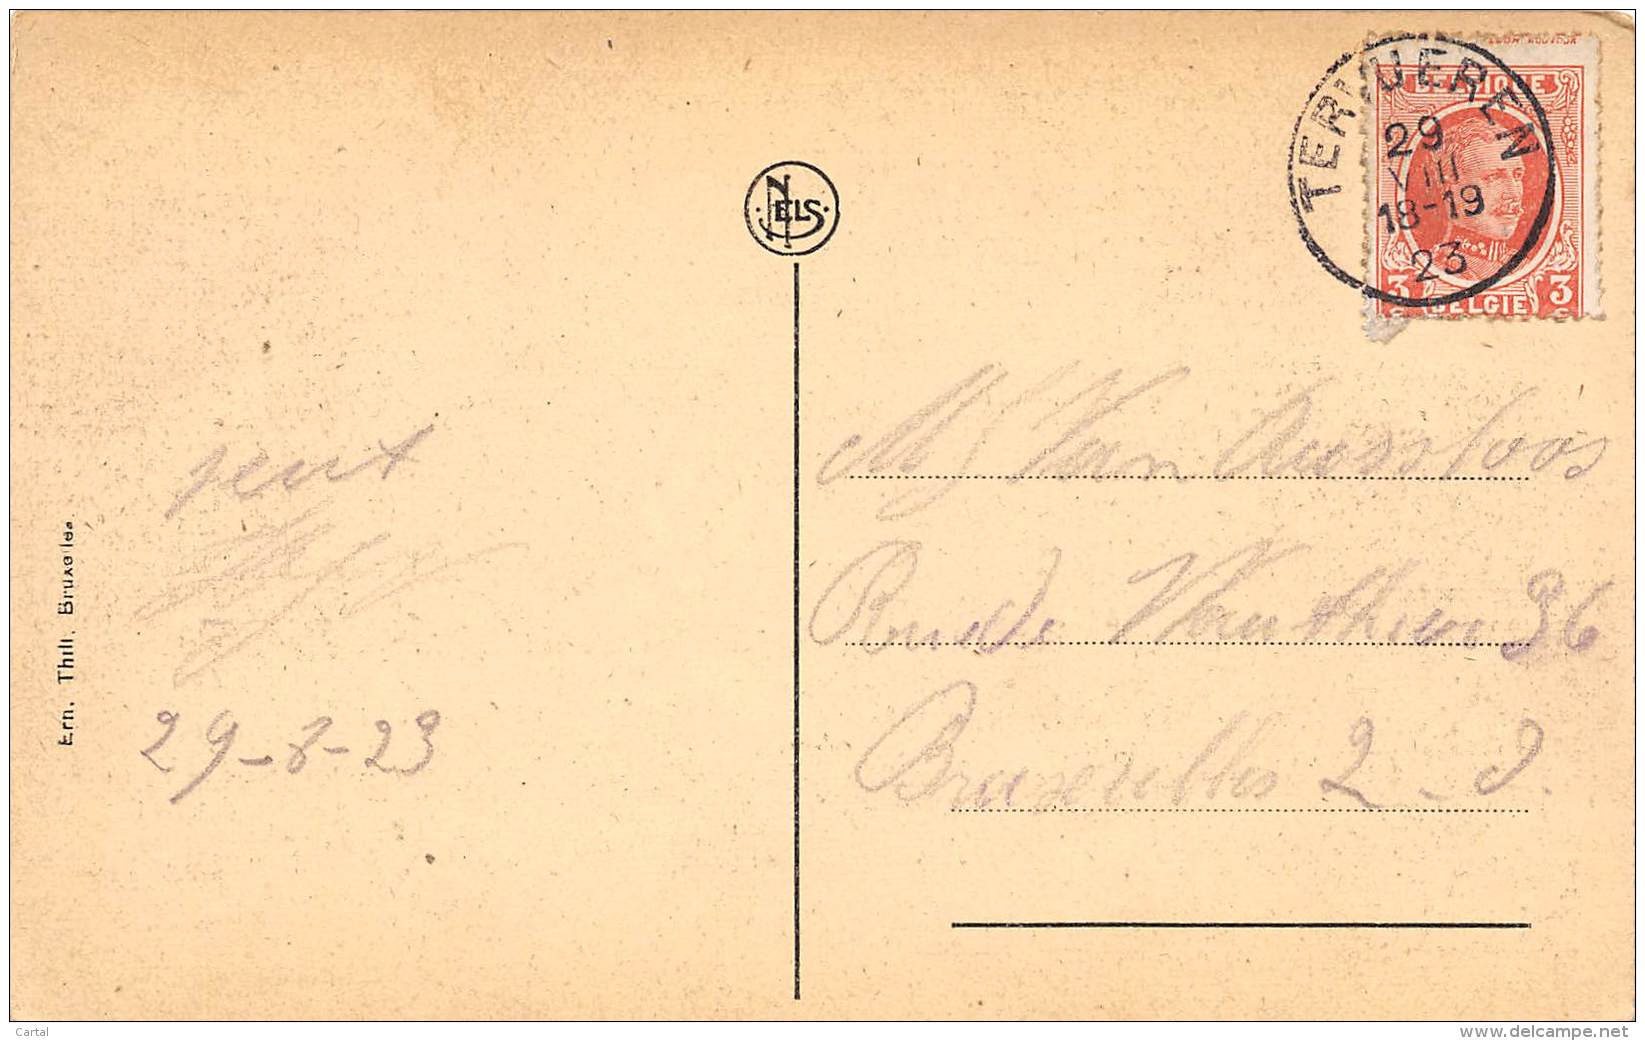 TERVUEREN
29
VIII
18-19
23
BELGIQUE
3 3
BELGIE
NELS
29-8-23
Van
Rue de 36
Bruxelles 2-
Ern. Thill, Bruxelles.
Cartal
www.delcampe.net